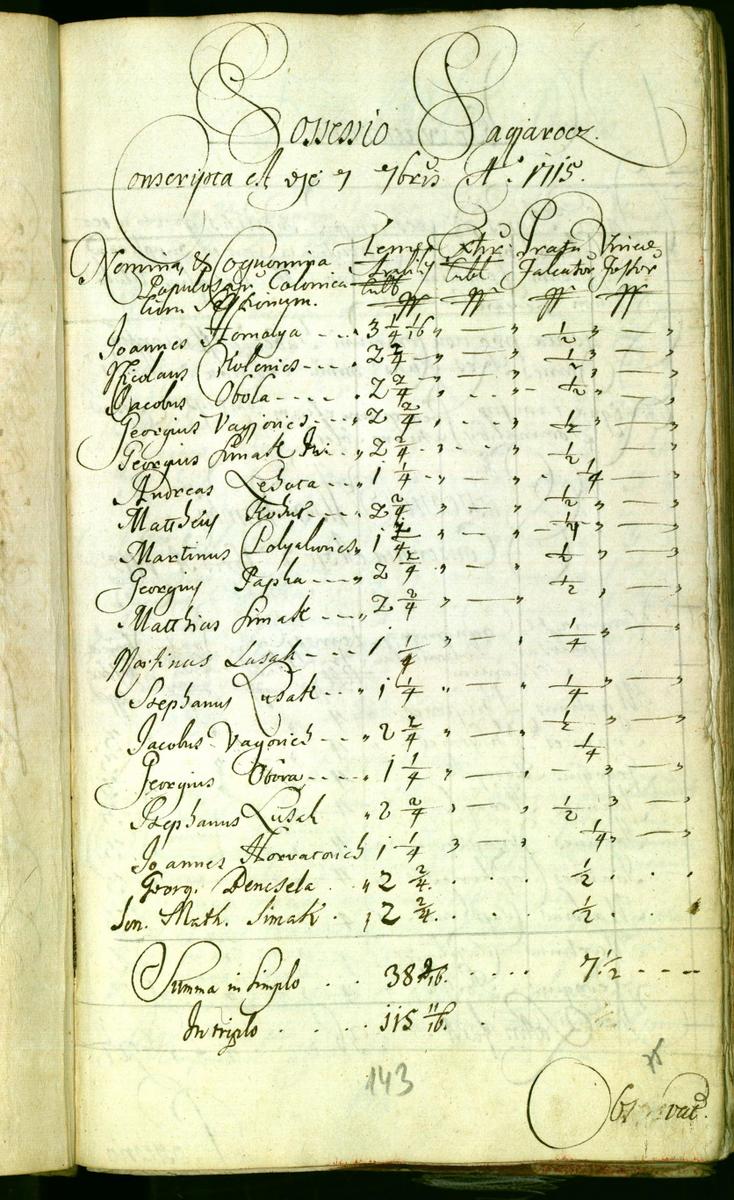 Possessio Sagjarocz.
Conscripta est die 7 7bris Aº 1715.
Nomina, & Cognomina Terrae Extir. Prata Vineae
Popülosar. Colonica Arabiles Cubl Falcator Fossor
lium Sessionum. Cubl
Joannes Homolya - - - " 3 1/4 1/16 " — " 1/2 " — "
Nicolaus Kolenics - - - " 2 2/4 " — " 1/2 " — "
Jacobus Obola - - - - " 2 2/4 " - - - " 1/2 " — "
Georgius Vagjovics - - - " 2 2/4 " - - - " 1/2 " — "
Georgius Simak Jun - " 2 2/4 " - - - " 1/2 " — "
Andreas Lehota - - - " 1 1/4 " — " 1/4 " — "
Matthejus Kodur - - " 2 2/4 " — " 1/2 " — "
Martinus Polyakovics " 1 1/4 " — " 1/4 " — "
Georgius Papha - - - " 2 2/4 " — " 1/2 " — "
Matthias Simak - - - " 2 2/4 " — " 1/2 " — "
Martinus Lusak - - - - 1 1/4 " — " 1/4 " — "
Stephanus Lusak - - " 1 1/4 " — " 1/4 " — "
Jacobus Vagovich - - " 2 2/4 " — " 1/2 " — "
Georgius Obora - - - - " 1 1/4 " — 1/4 " — "
Stephanus Lusak " 2 2/4 " — " 1/2 " — "
Joannes Horvatovich 1 1/4 " — " 1/4 " — "
Georg. Dencsela . " 2 2/4 . . . . 1/2 . . .
Sen. Math. Simak . , 2 2/4 . . . . 1/2 . . .
Summa in Simplo . . 38 9/16 . . . . 7 1/2 - - - -
In triplo . . . . 115 11/16 .
143
Observat.